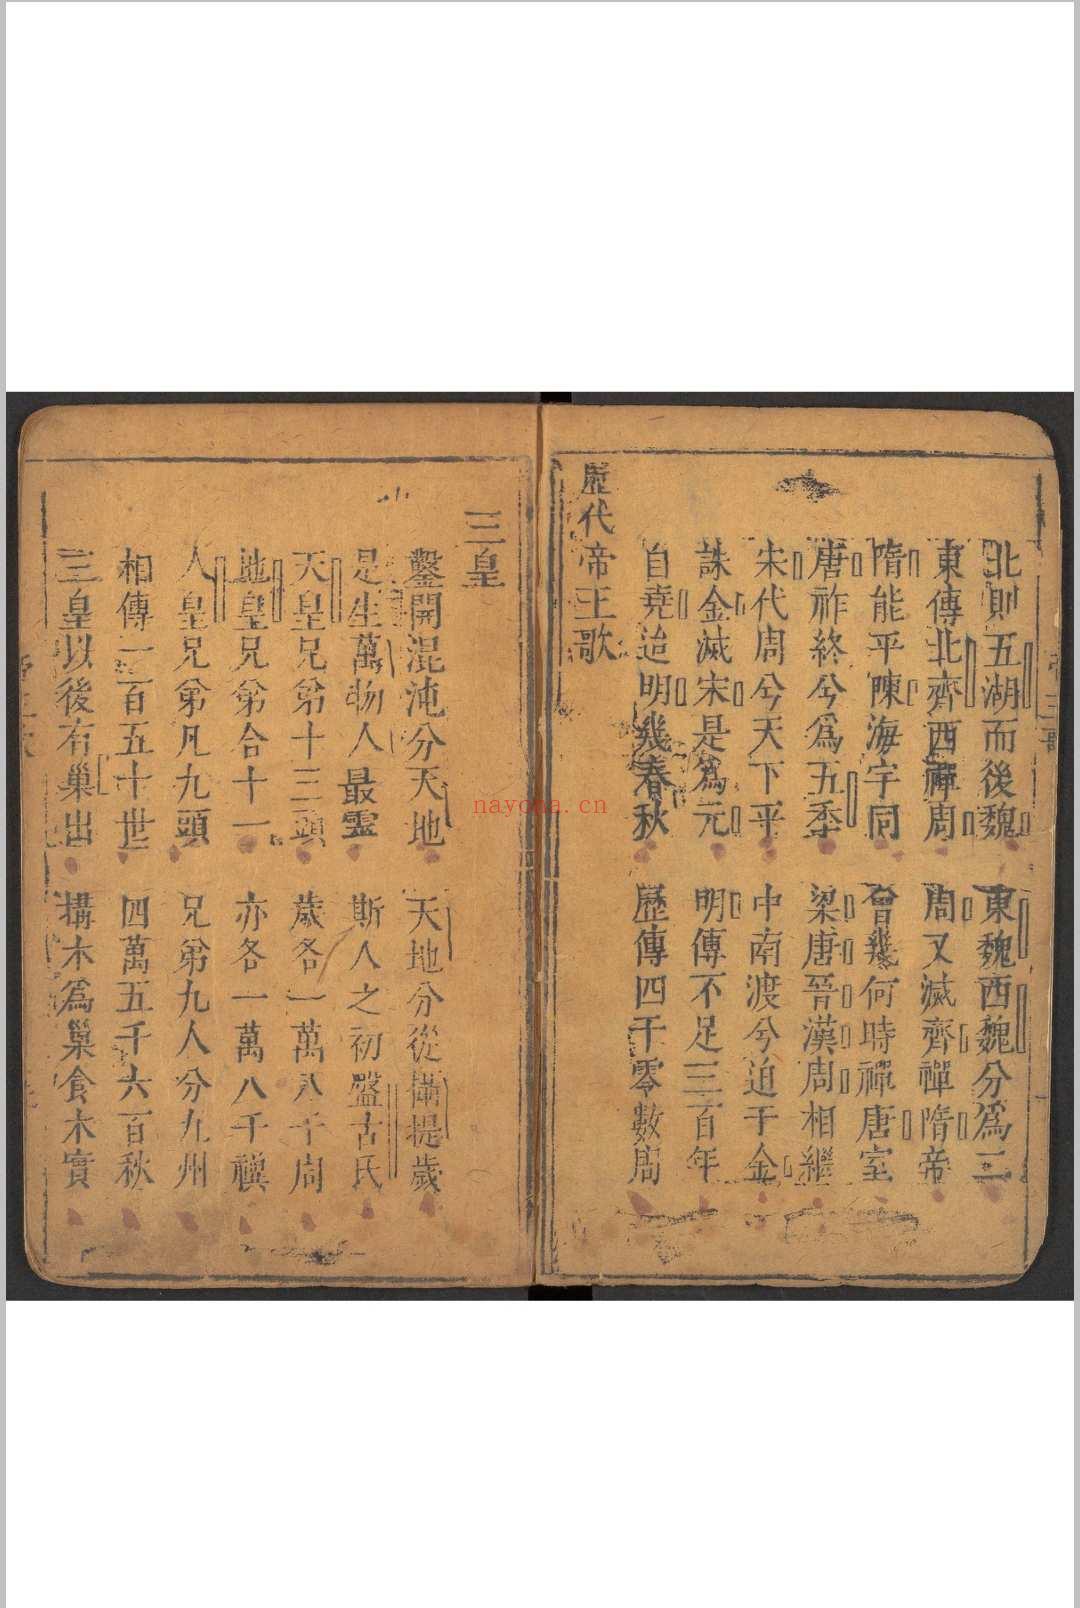 北則五湖而後魏 東魏西魏分爲二
東傳北齊西禪周 周又滅齊禪隋帝
隋能平陳海宇同 曾幾何時禪唐室
唐祚終兮爲五季 梁唐晉漢周相繼
宋代周兮天下平 中南渡兮迫于金
誅金滅宋是爲元 明傳不足三百年
自堯迨明幾春秋 歷傳四千零數周
歷代帝王歌
三皇
鑿開混沌分天地 天地分從攝提歲
是生萬物人最霊 斯人之初盤古氏
天皇兄弟十三頭 歲各一萬八千周
地皇兄弟合十一 亦各一萬八千禩
人皇兄弟凡九頭 兄弟九人分九州
相傳一百五十世 四萬五千六百秋
三皇以後有巢出 搆木爲巢食木實
nayona.cn